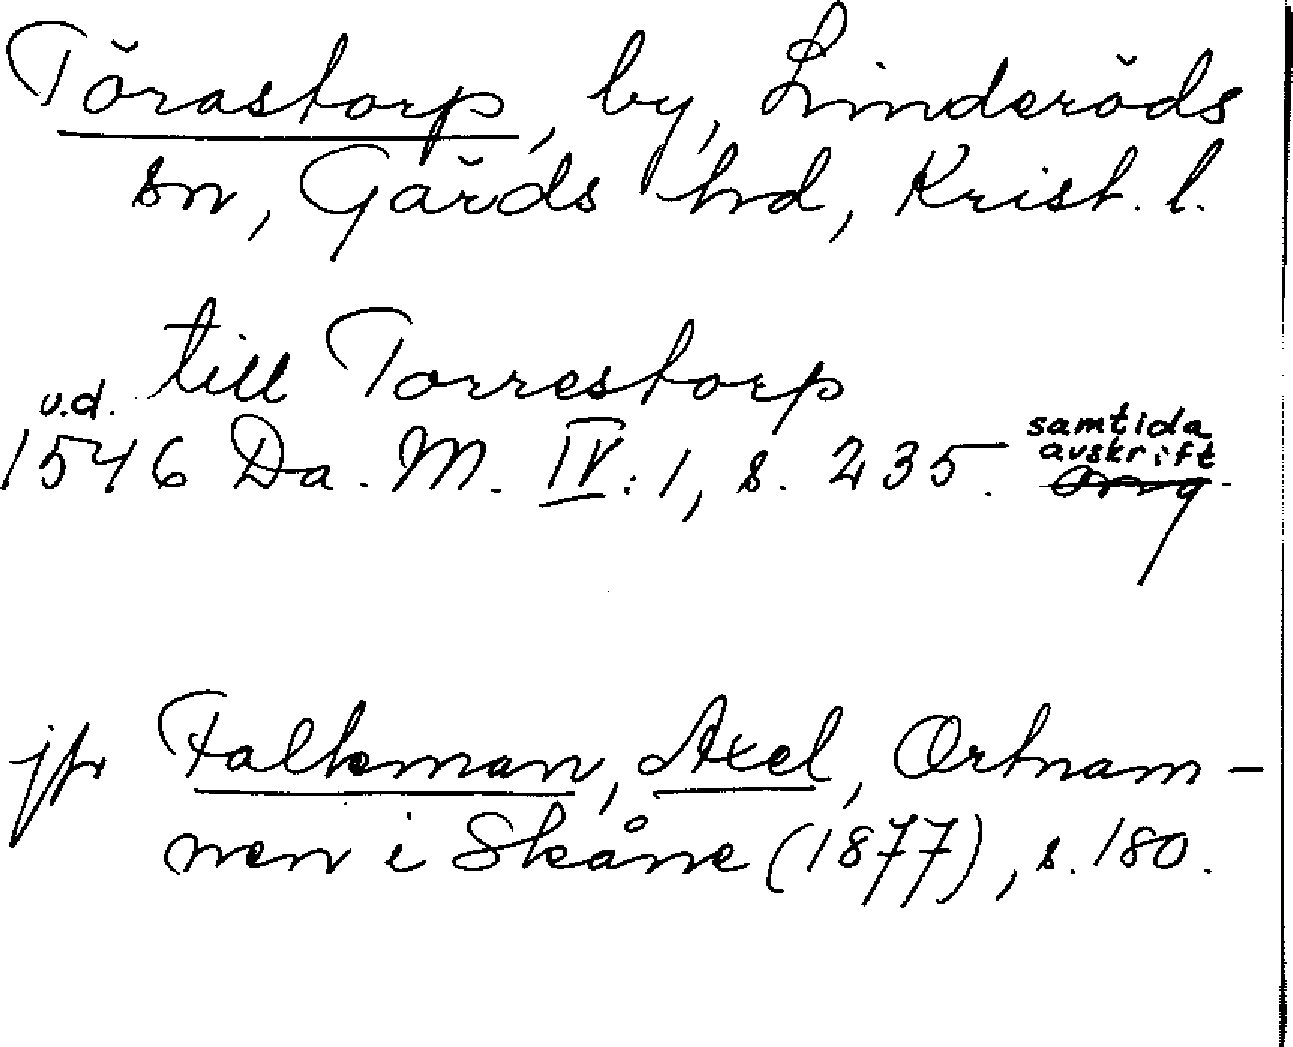 Törastorp, by, Linderöds
sn, Gärds hd, Krist. l.
till Torrestorp
u.d.
1546 Da. M. IV: 1, s. 235. samtida
avskrift
jfr Falkman, Axel, Ortnam-
nen i Skåne (1877), s. 180.